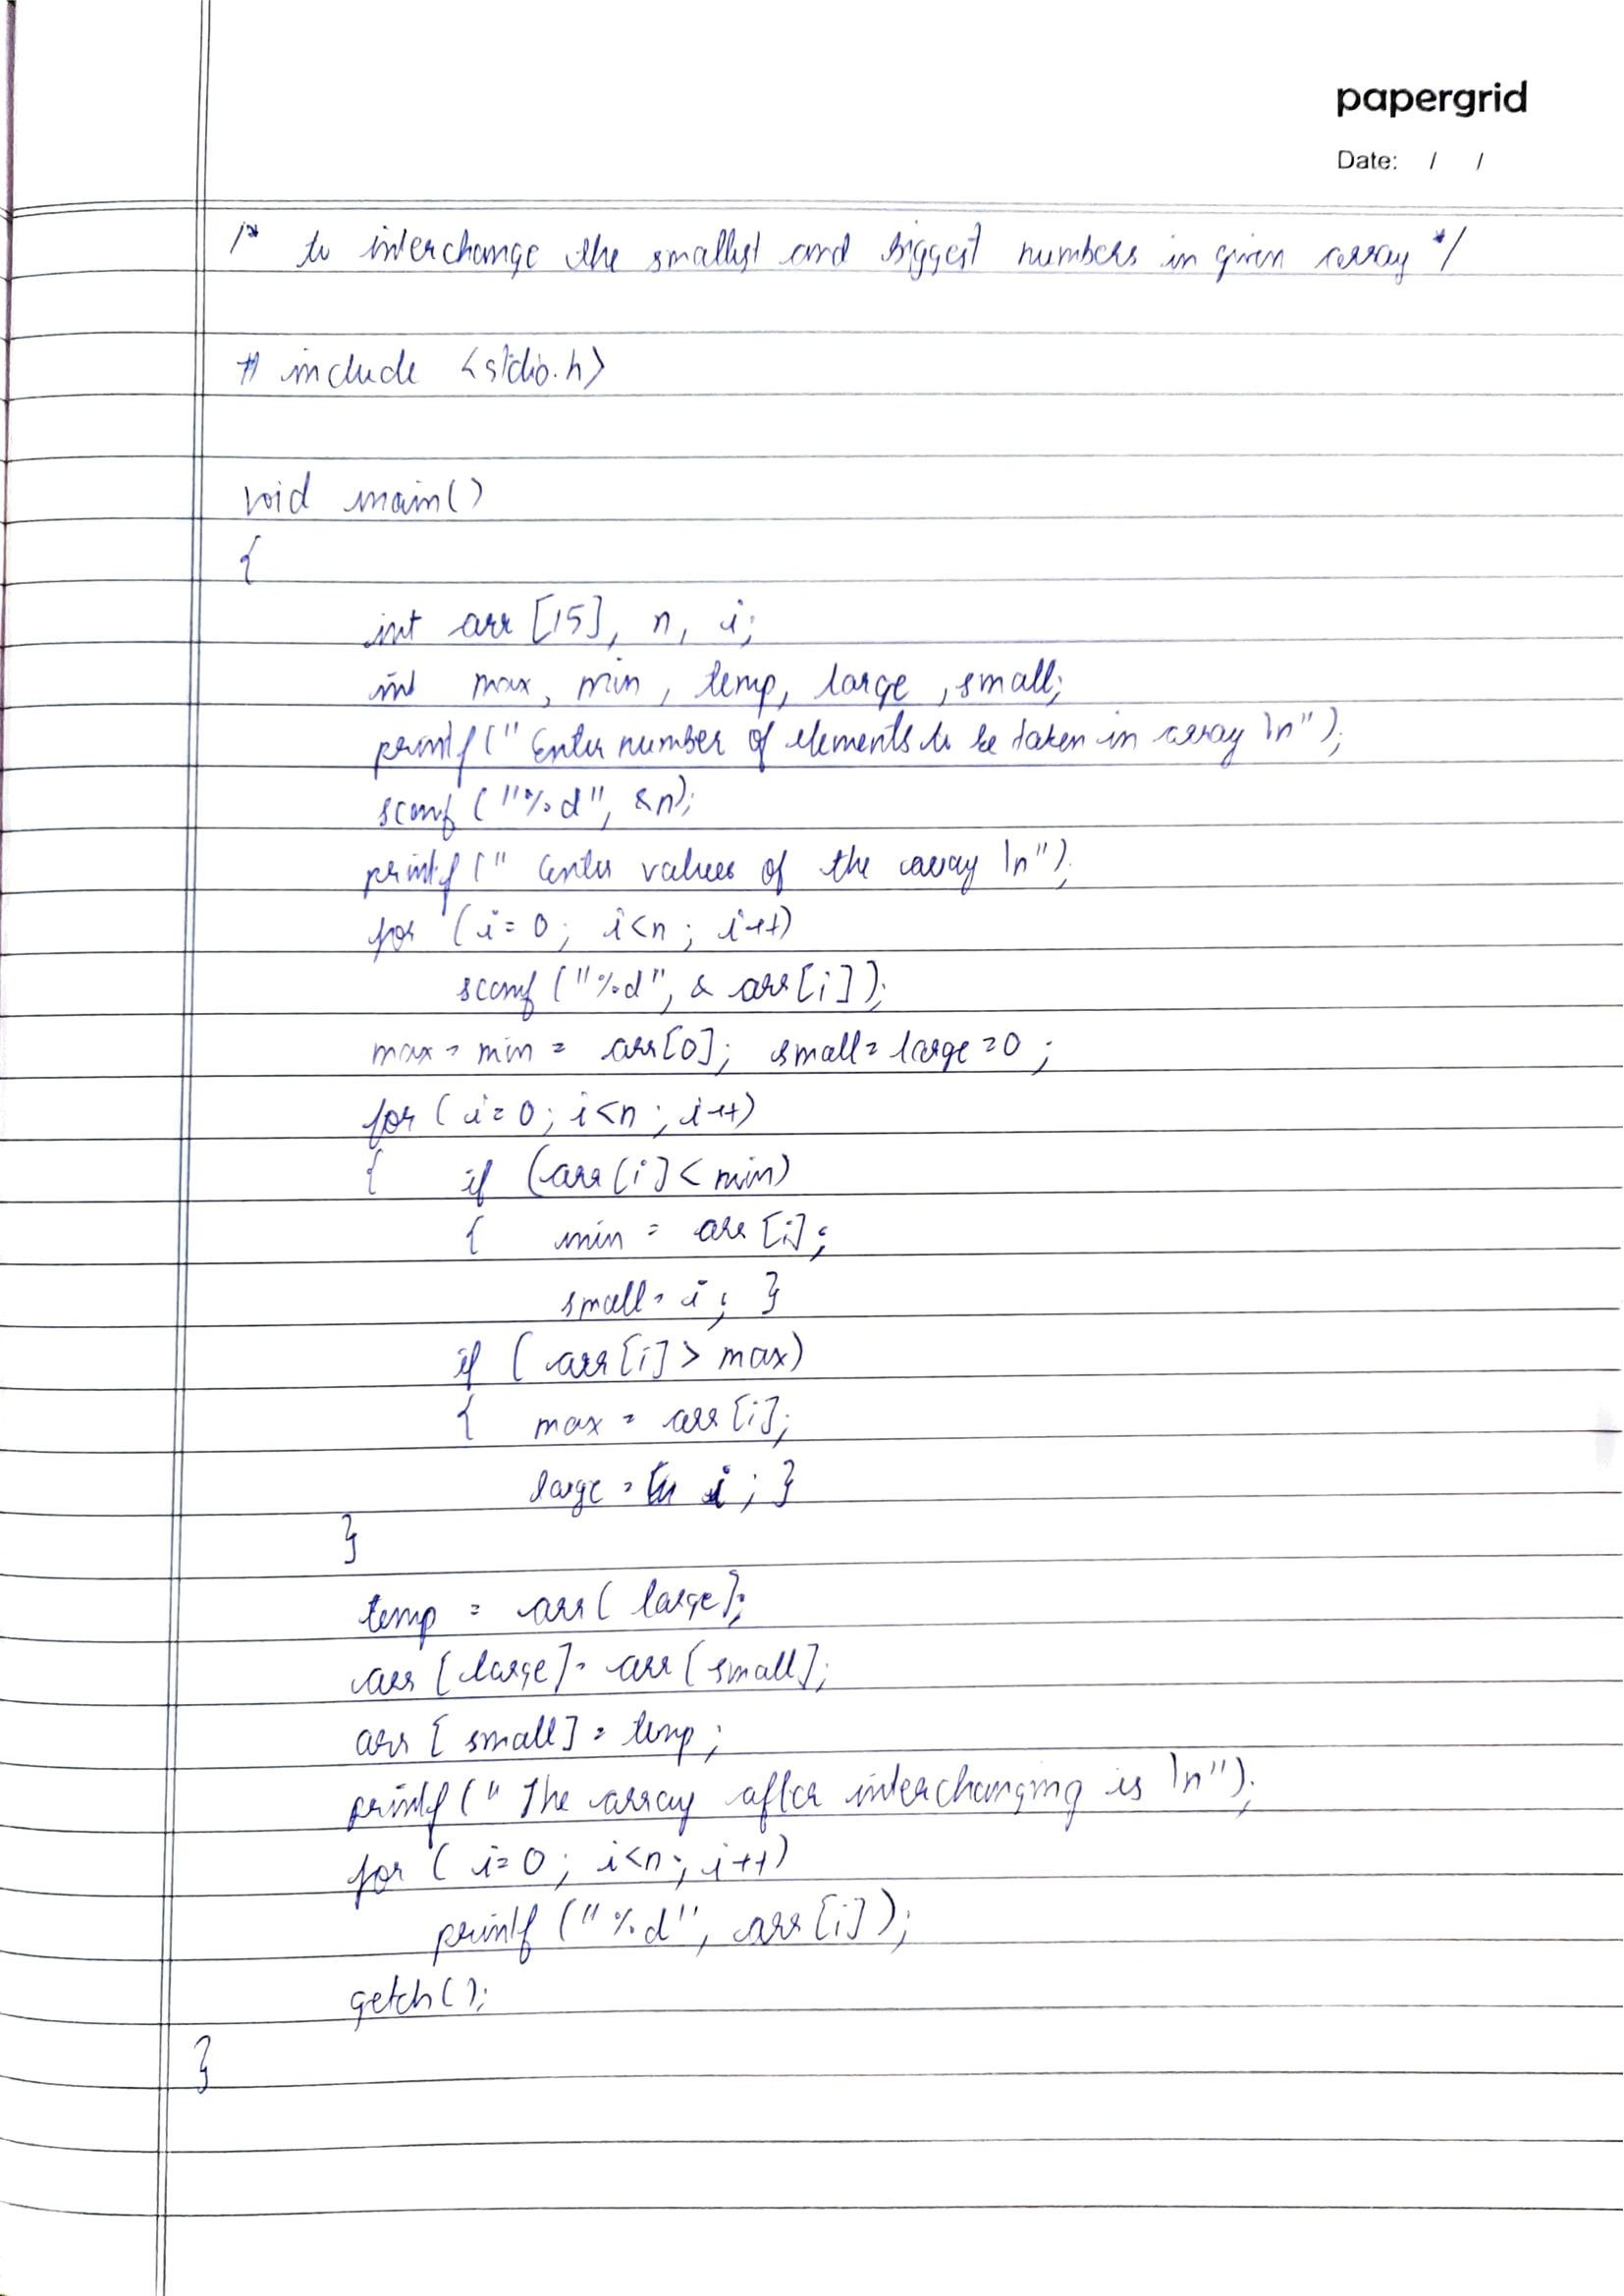 papergrid
Date: / /
/* to interchange the smallest and biggest numbers in given array */
# include <stdio.h>
void main()
{
int arr [15], n, i;
int max, min, temp, large, small;
printf (" Enter number of elements to be taken in array \n");
scanf ("%d", &n);
printf (" Enter values of the array \n");
for (i=0; i<n; i++)
scanf ("%d", & arr[i]);
max = min = arr[0]; small = large = 0;
for (i=0; i<n; i++)
{ if (arr[i] < min)
{ min = arr[i];
small = i; }
if (arr[i] > max)
{ max = arr[i];
large = i; }
}
temp = arr[large];
arr[large] = arr[small];
arr[small] = temp;
printf (" The array after interchanging is \n");
for (i=0; i<n; i++)
printf ("%d", arr[i]);
getch();
}